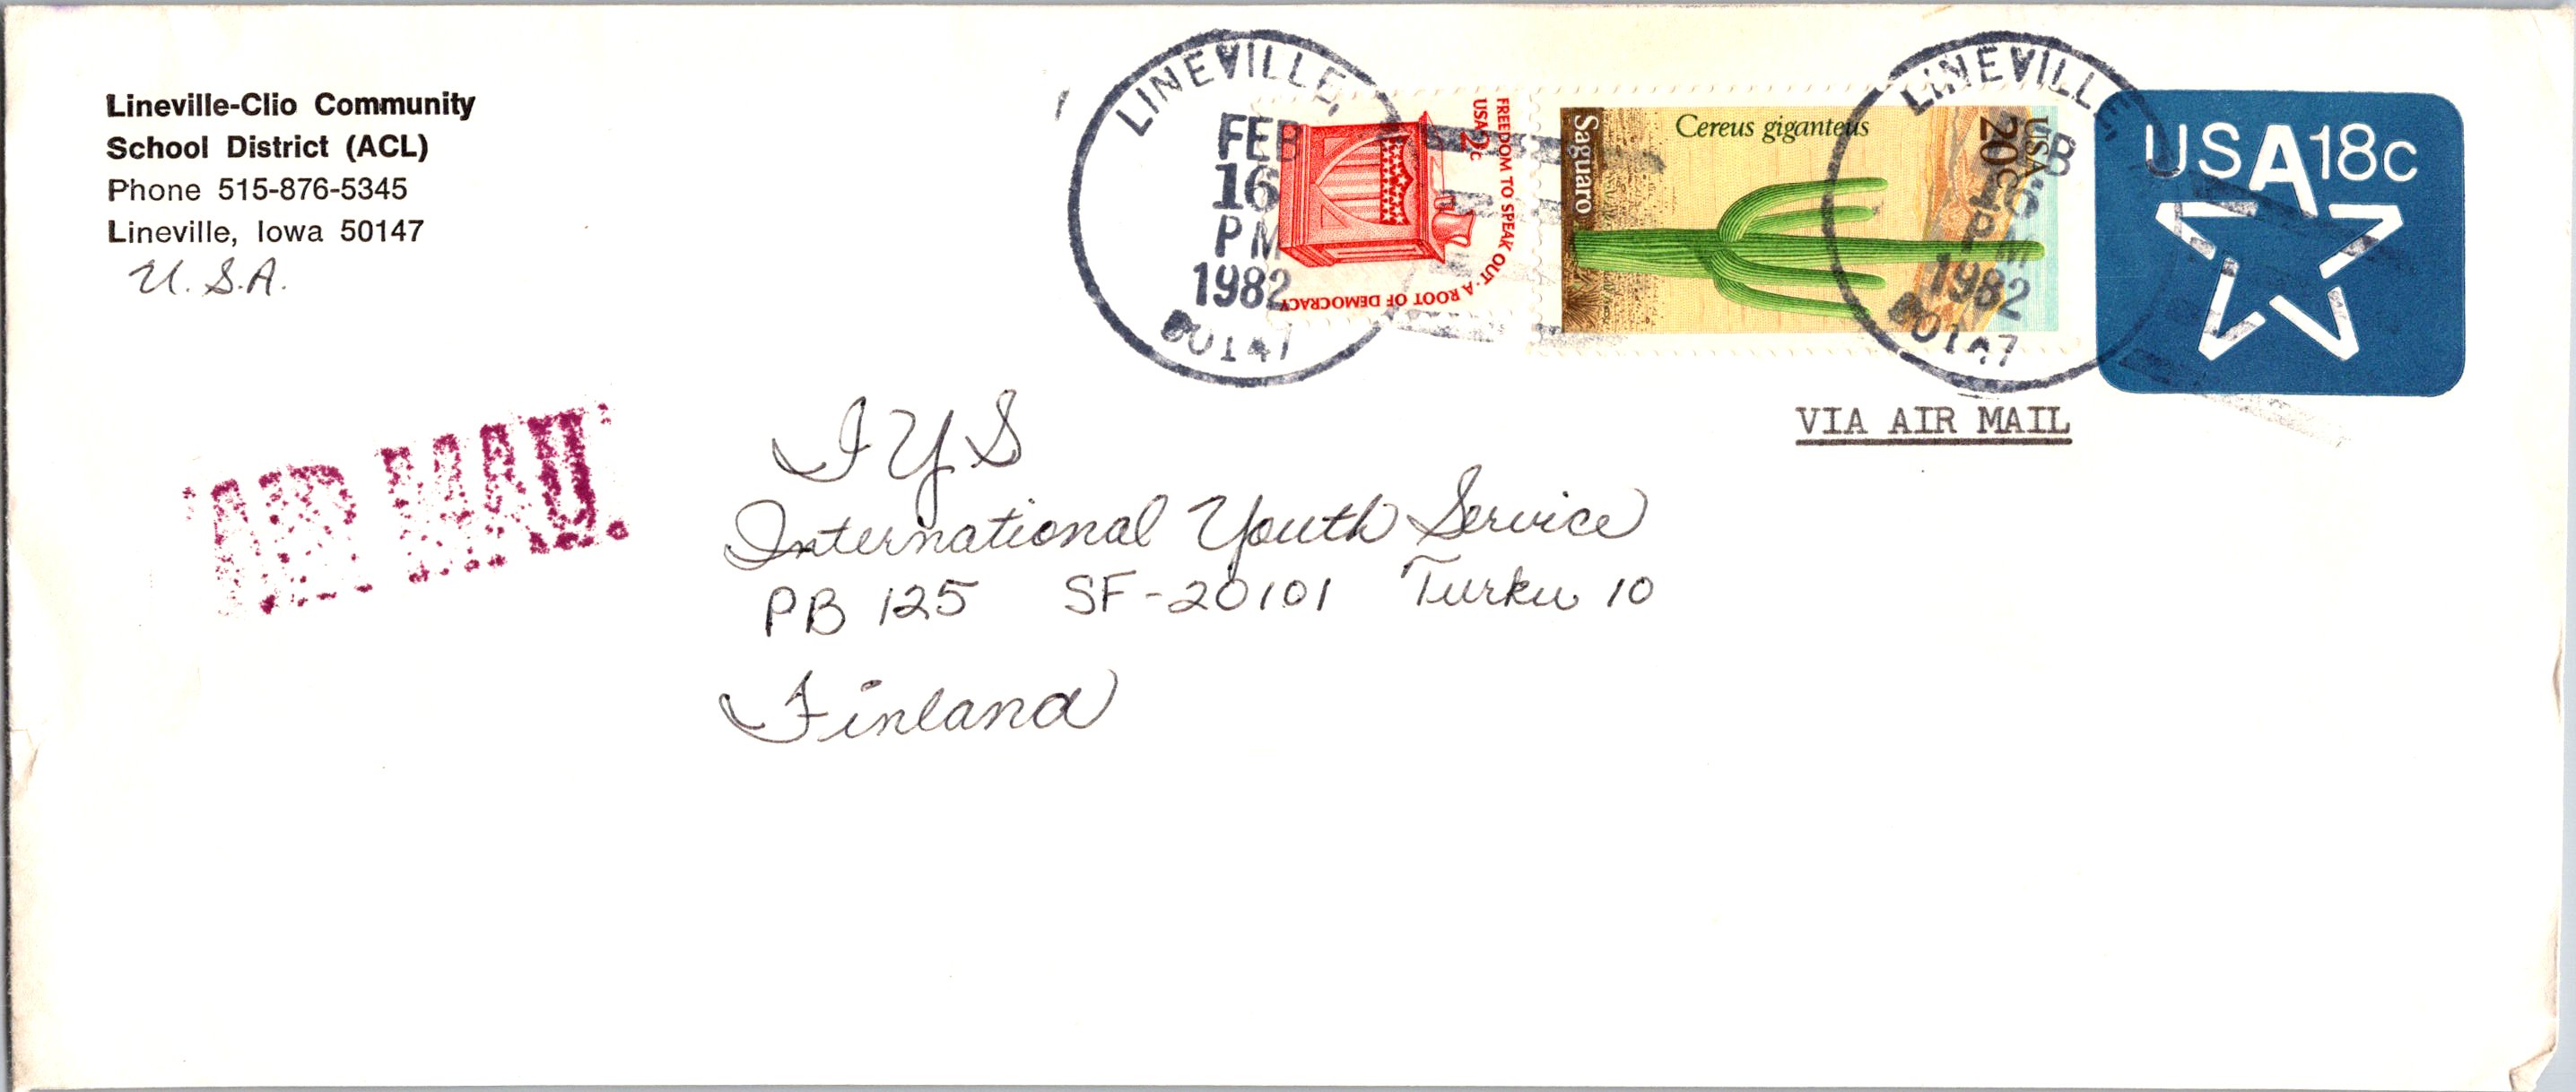 Lineville-Clio Community
School District (ACL)
Phone 515-876-5345
Lineville, Iowa 50147
U.S.A.
LINEVILLE,
FEB
16
PM
1982
50147
FREEDOM TO SPEAK OUT · A ROOT OF DEMOCRACY
USA 2c
Saguaro
Cereus giganteus
USA
20c
LINEVILLE,
FEB
16
PM
1982
50147
USA 18c
VIA AIR MAIL
AIR MAIL
IYS
International Youth Service
PB 125 SF-20101 Turku 10
Finland